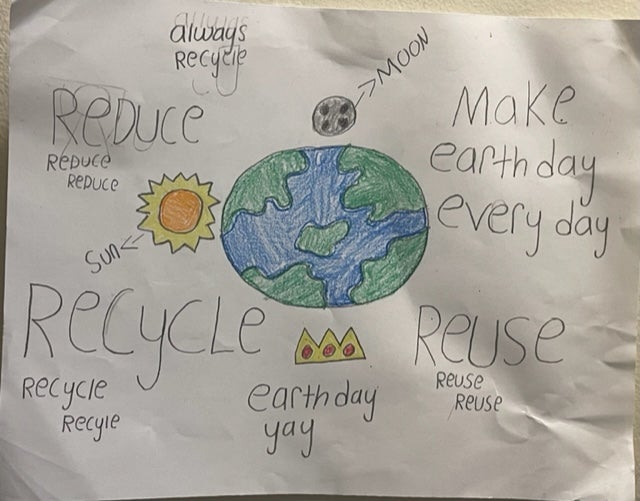 always
Recycle
MOON
REDUCE
REDUCE
REDUCE
Make
earth day
every day
Sun
RECYCLE
Recycle
Recyle
REUSE
REUSE
REUSE
earth day
yay